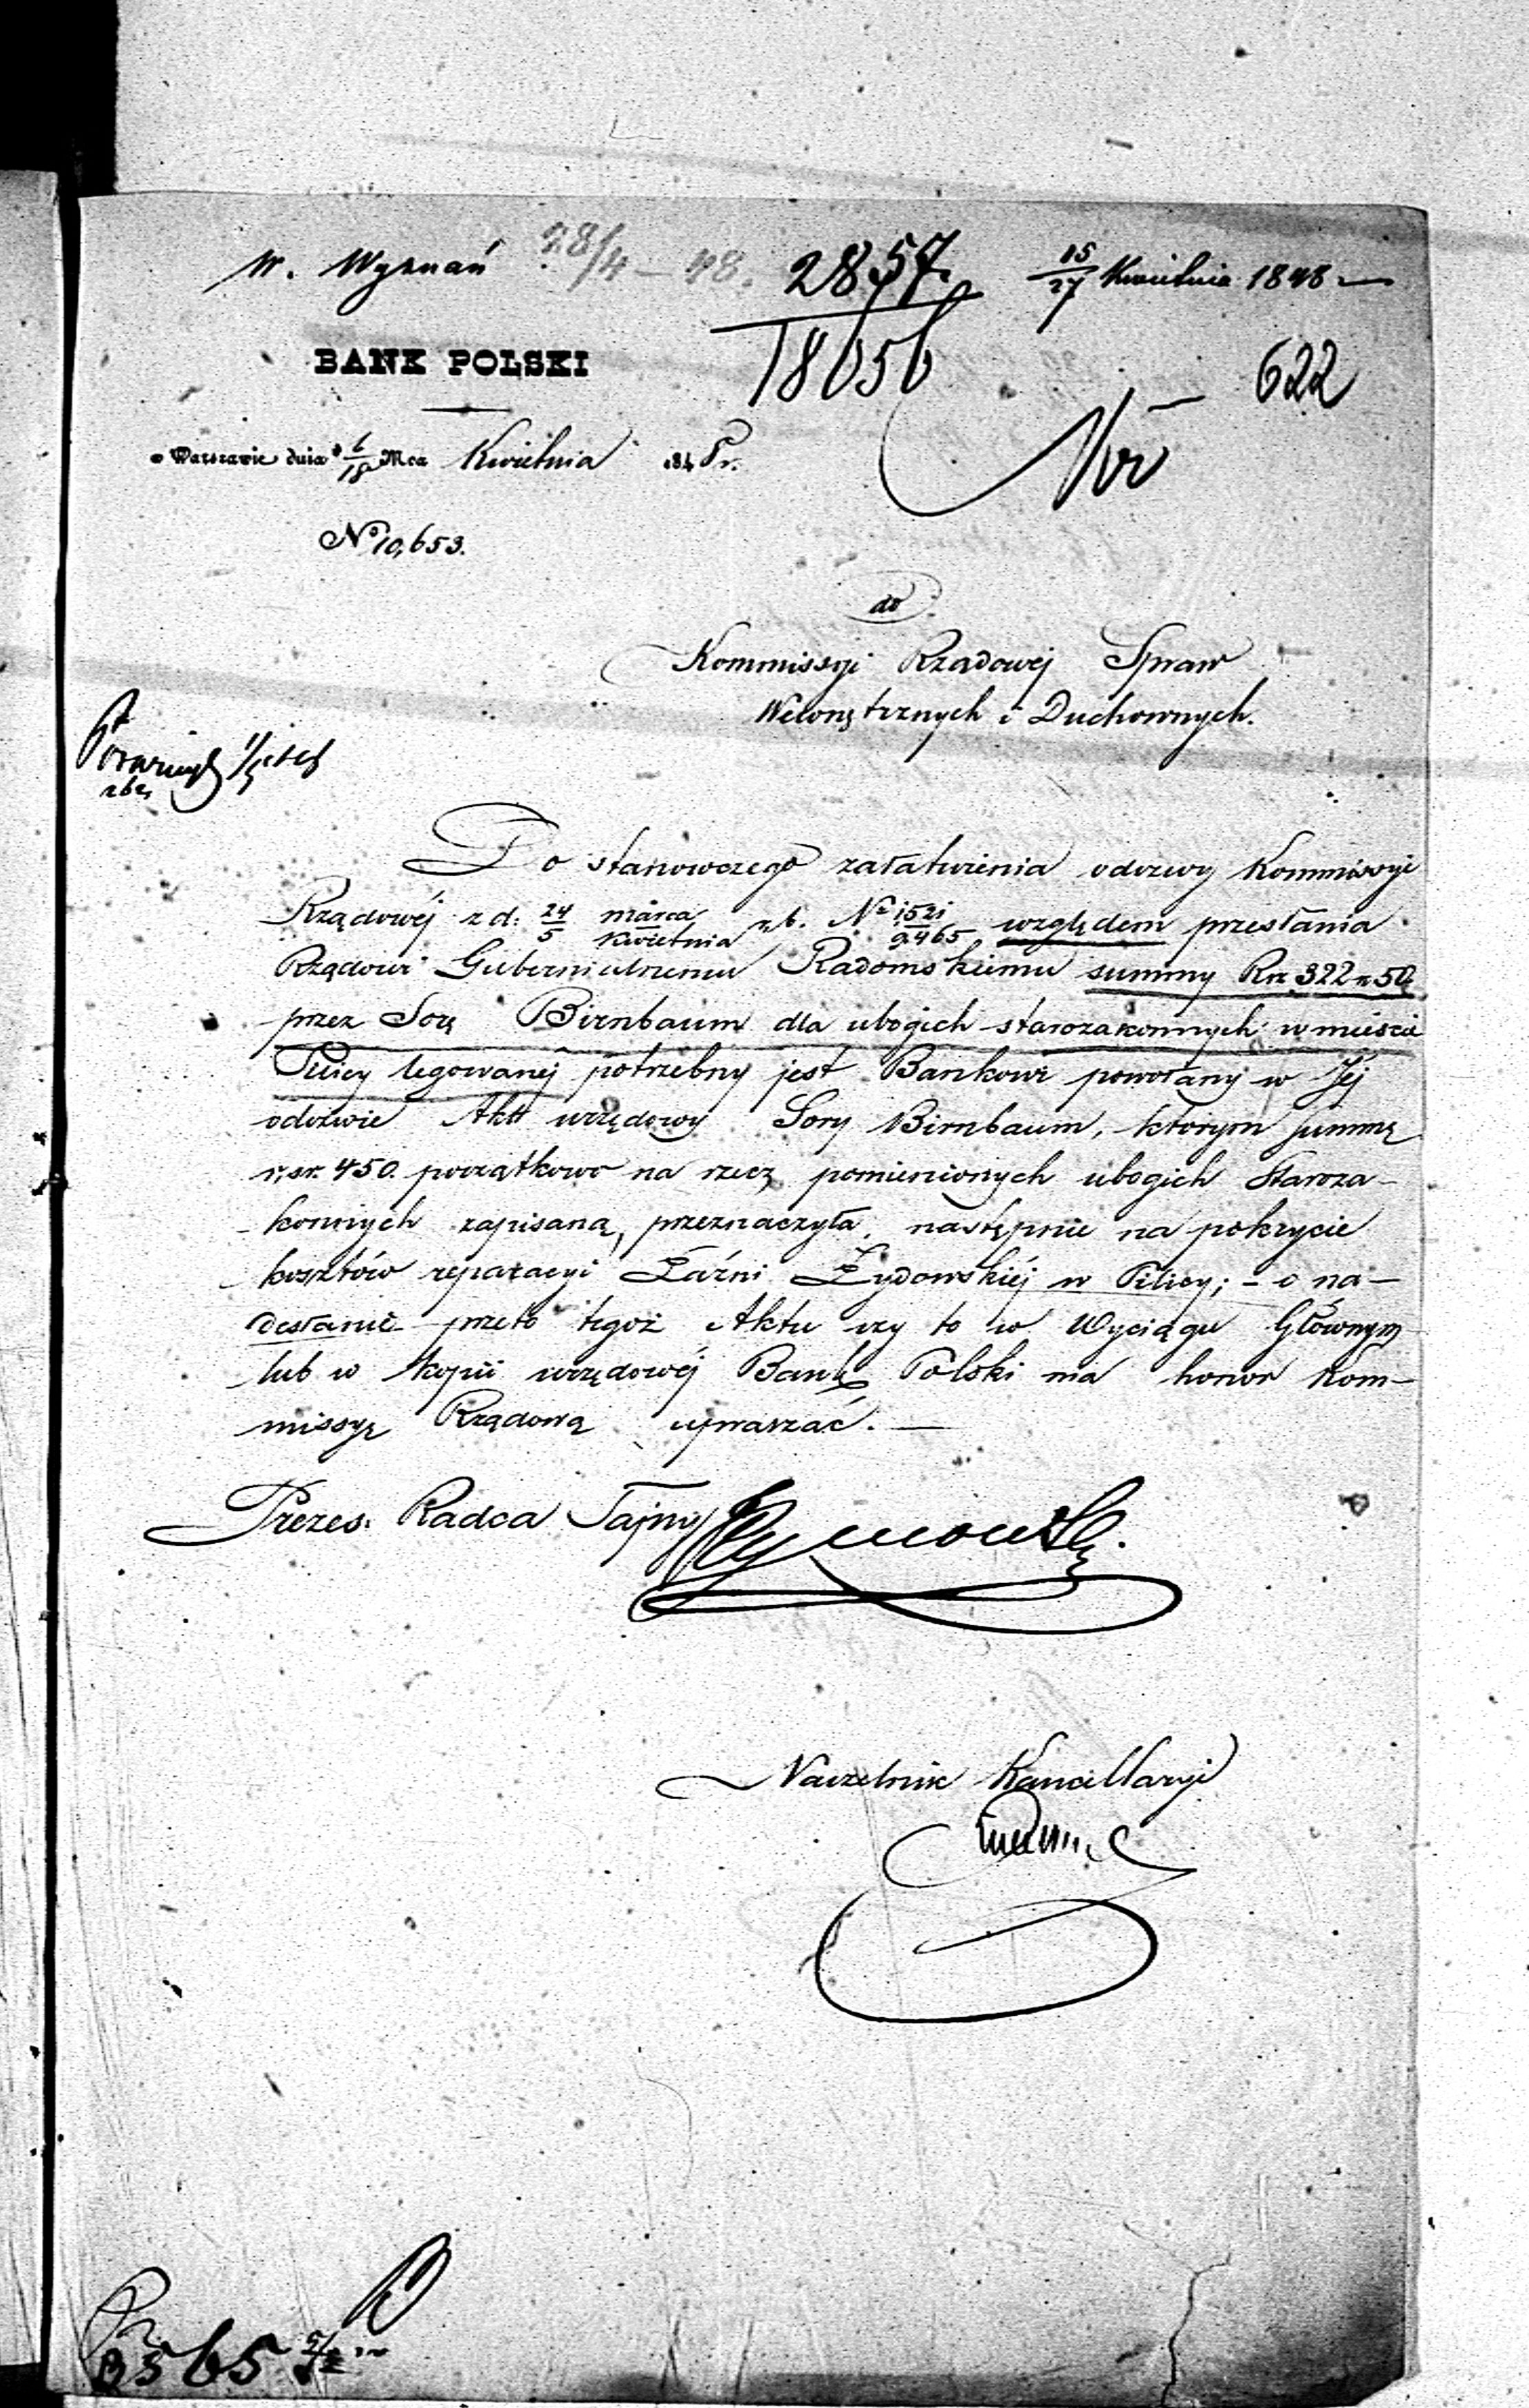 W. Wyznań 28/4 – 48. 2857. 15/27 Kwietnia 1848
18656
BANK POLSKI
622
w Warszawie dnia 6/18 Mca Kwietnia 1848 r.
No 10,653.
do
Kommissyi Rządowej Spraw
Wewnętrznych i Duchownych.
Do stanowczego załatwienia odezwy Kommissyi
Rządowéj z d: 24/5 marca/Kwietnia r.b. No 1521/9465 względem przesłania
Rządowi Gubernialnemu Radomskiemu summy Rsr 322 k 50
przez Sorę Birnbaum dla ubogich starozakonnych w mieście
Pilicy legowanéj potrzebny jest Bankowi powołany w Jéj
odezwie Akt urzędowy Sory Birnbaum, którym summę
r. sr. 450. początkowo na rzecz pomienionych ubogich Staroza-
konnych zapisaną, przeznaczyła następnie na pokrycie
kosztów reparacyi Łaźni Żydowskiéj w Pilicy; – o na-
desłanie przeto tegoż Aktu czy to w Wyciągu Głównym
lub w kopii urzędowéj Bank Polski ma honor Kom-
missyę Rządową upraszać. —
Prezes Radca Tajny
Naczelnik Kancellaryi
3565